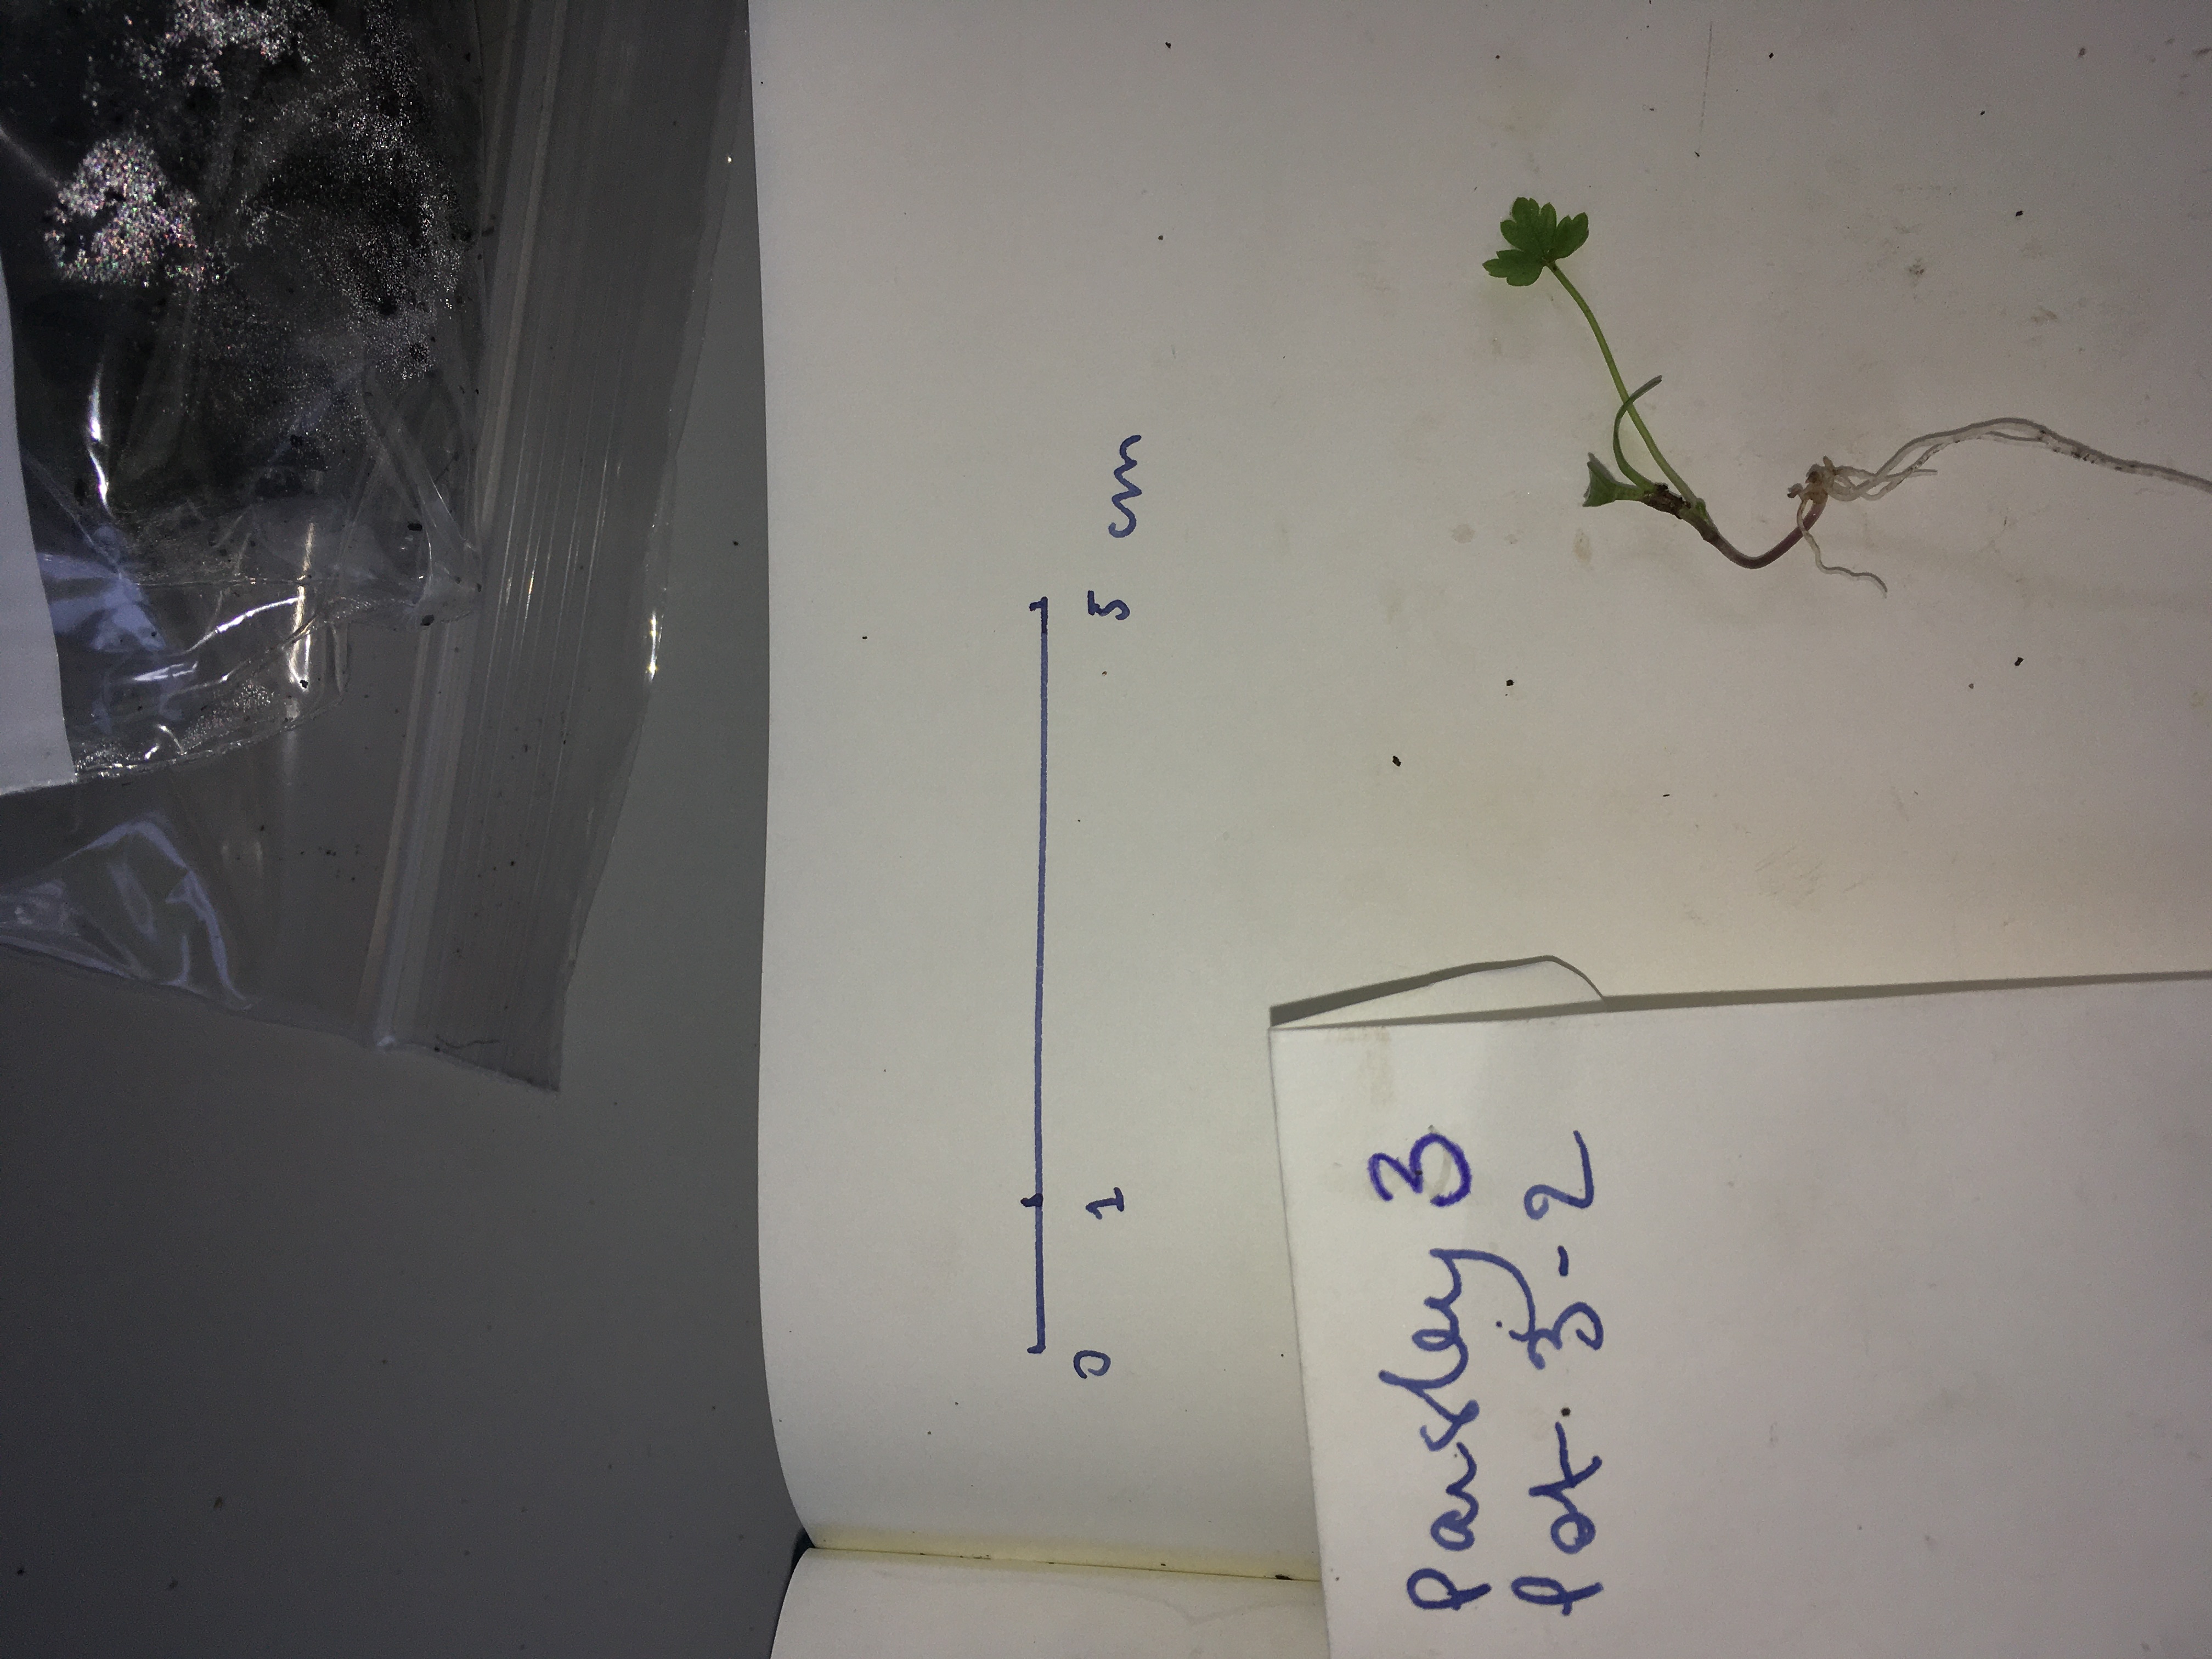 0 1 5 cm
Parsley 3
Pot. 3-2